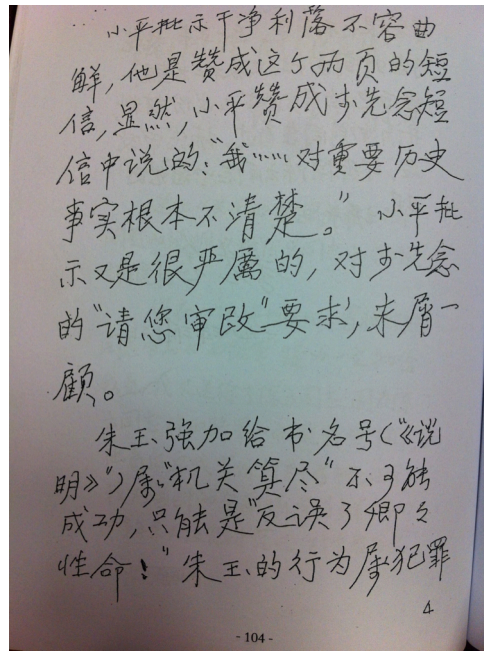 小平批示干净利落不容曲
解,他是赞成这个两页的短
信,显然,小平赞成李先念短
信中说的:“我……对重要历史
事实根本不清楚。” 小平批
示又是很严厉的,对李先念
的“请您审改”要求,未屑一
顾。
朱玉强加给书名号(“《说
明》”)属“机关算尽”不可能
成功,只能是“反误了卿卿
性命!”朱玉的行为属犯罪
4
- 104 -